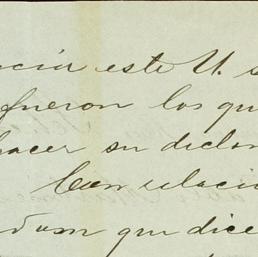 ncia este U. s
fueron los qu
hacer su declar
Con relació
dum que dice